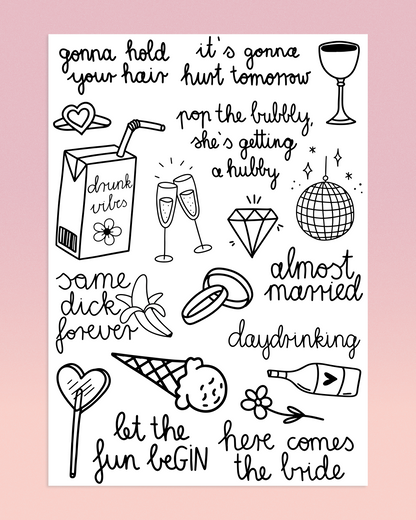 gonna hold
your hair
it's gonna
hurt tomorrow
pop the bubbly,
she's getting
a hubby
drunk
vibes
almost
married
same
dick
forever
daydrinking
let the
fun beGIN
here comes
the bride